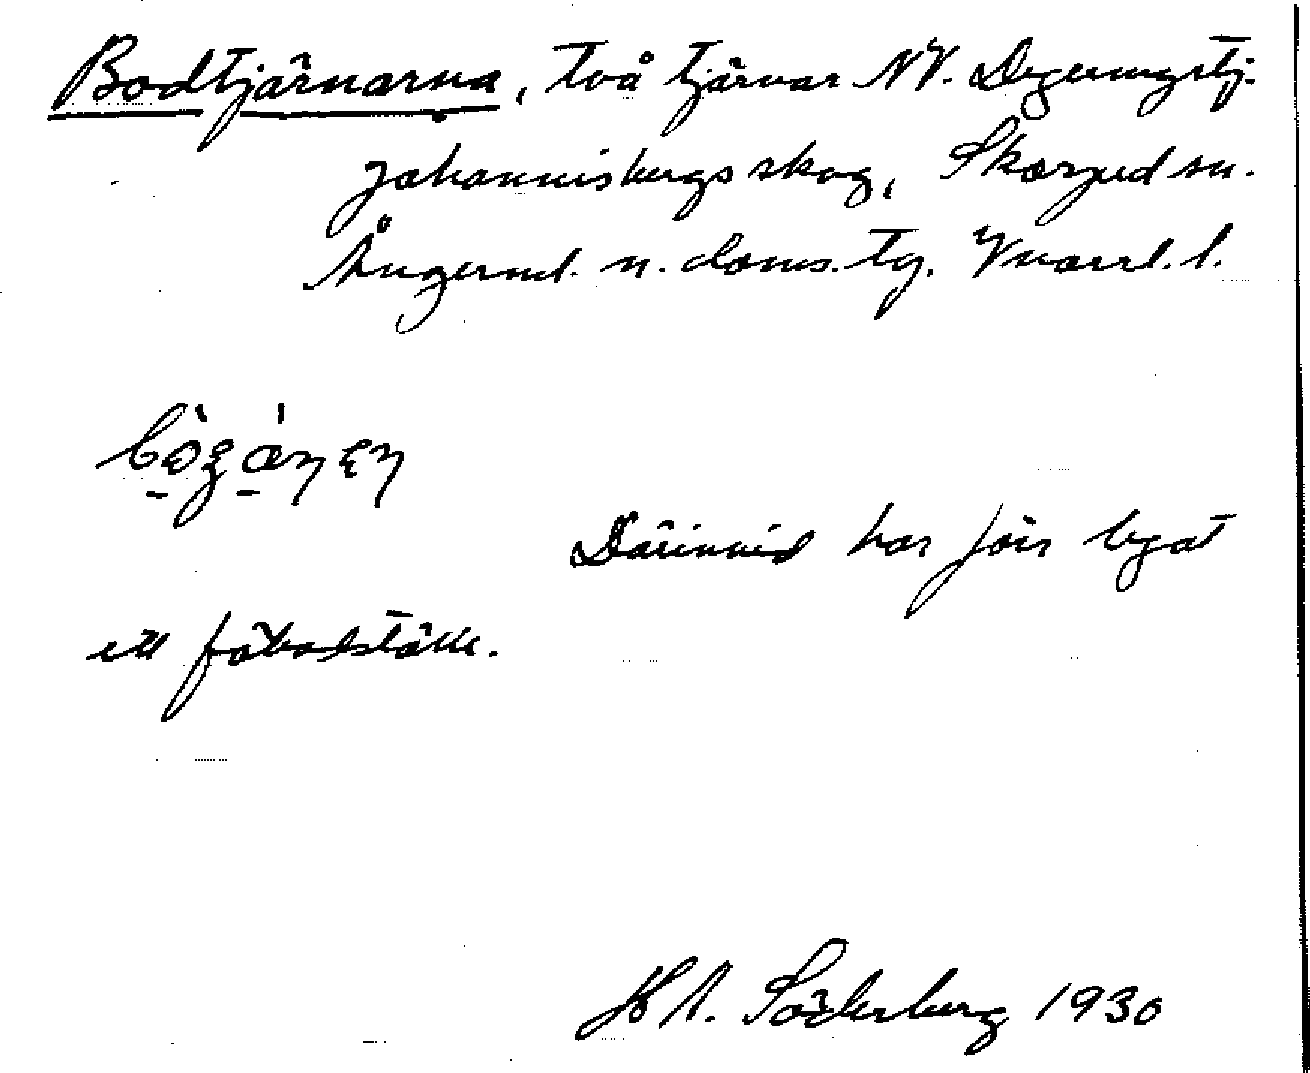 Bodtjärnarna, två tjärnar NV. Degerungstj.
Johannisbergs skog, Skorped sn.
Ångerml. n. doms. tg. Vnorrl. l.
Därinvid har förr legat
ett fäbodställe.
H A. Söderberg 1930